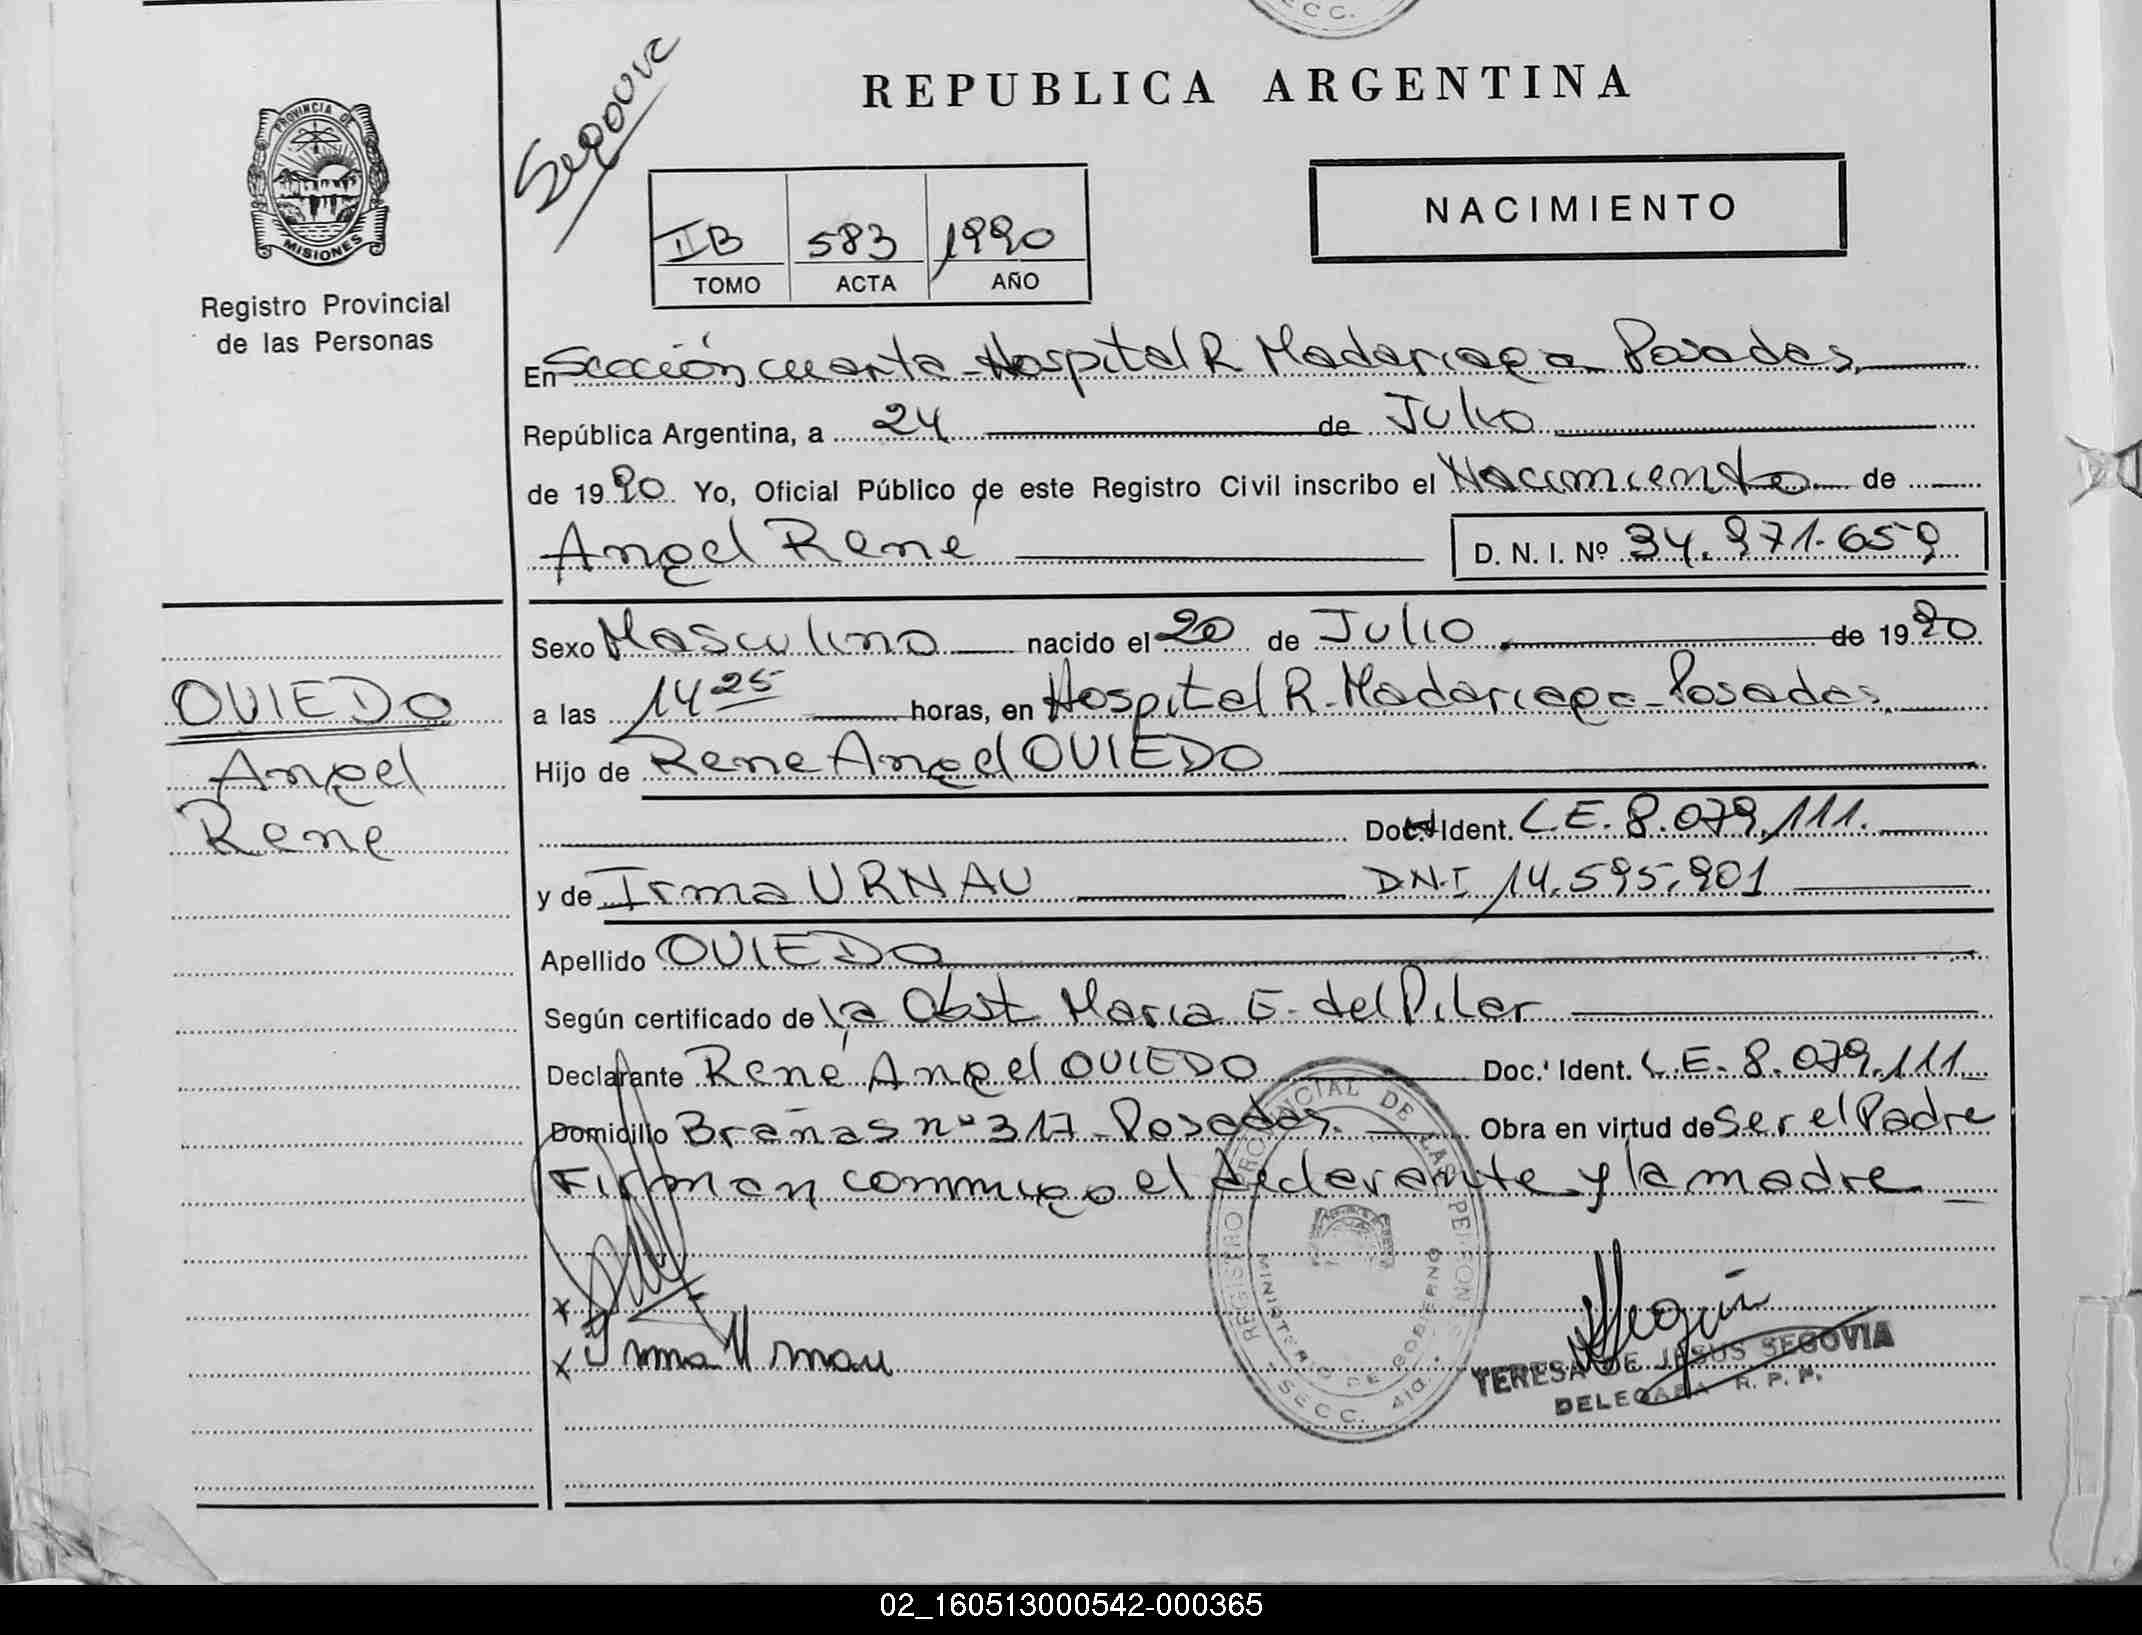 C C.
Segovia
REPUBLICA ARGENTINA
PROVINCIA DE
MISIONES
Registro Provincial
de las Personas
NACIMIENTO
II B 583 1990
TOMO ACTA AÑO
En Sección cuarta - Hospital R Madariaga Posadas.
República Argentina, a 24 de Julio
de 1990 Yo, Oficial Público de este Registro Civil inscribo el Nacimiento de
Angel René D. N. I. Nº 34.971.659
Sexo Masculino nacido el 20 de Julio de 1990
a las 14 25 horas, en Hospital R. Madariaga - Posadas.
Hijo de Rene Angel OVIEDO
Doc. Ident. L.E. 8.079.111.
y de Irma URNAU DN.I 14.595.901
Apellido OVIEDO
Según certificado de la Obst Maria E. del Pilar
Declarante René Angel OVIEDO Doc. Ident. L.E. 8.079.111
Domicilio Brañas nº 317 - Posadas. Obra en virtud de Ser el Padre
Firman conmigo el declarante y la madre
OVIEDO
Angel
Rene
x
x Irma Urnau
REGISTRO PROVINCIAL DE LAS PERSONAS
MINISTERIO DE GOBIERNO
SECC. 4ta.
TERESA DE JESUS SEGOVIA
DELEGADA R. P. P.
02_160513000542-000365